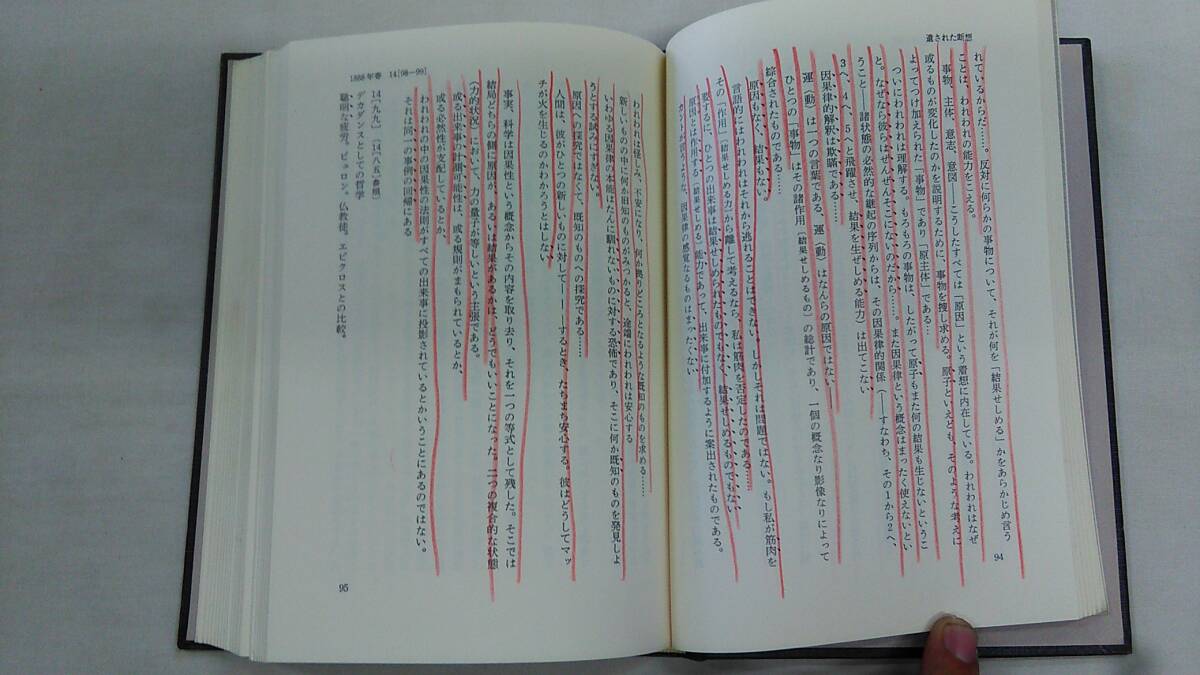 遺された断想
れているからだ……。反対に何らかの事物について、それが何を「結果せしめる」かをあらかじめ言う
ことは、われわれの能力をこえる。
事物、主体、意志、意図――こうしたすべては「原因」という着想に内在している。われわれはなぜ
或るものが変化したのかを説明するために、事物を捜し求める。原子といえども、そのような考えに
よってつけ加えられた「事物」であり「原主体」である……
ついにわれわれは理解する。もろもろの事物は、したがって原子もまた何の結果も生じないというこ
と。なぜなら彼らはぜんぜんそこにないのだから……。また因果律という概念はまったく使えないとい
うこと――諸状態の必然的な継起の序列からは、その因果律的関係(――すなわち、その1から2へ、
3へ、4へ、5へと飛躍させ、結果を生ぜしめる能力)は出てこない
因果律的解釈は欺瞞である……
運〈動〉は一つの言葉である、運〈動〉はなんらの原因ではない――
ひとつの「事物」はその諸作用〔結果せしめるもの〕の総計であり、一個の概念なり影像なりによって
綜合されたものである……
原因もなく、結果もない。
言語的にはわれわれはそれから逃れることはできない。しかしそれは問題ではない。もし私が筋肉を
その「作用」〔結果せしめる力〕から離して考えるなら、私は筋肉を否定したのである……
要するに、ひとつの出来事は結果せしめられたものでもなく、結果せしめるものでもない
原因とは作用する〔結果せしめる〕能力であって、出来事に付加するように案出されたものである。
カントが思うような、因果律の感覚なるものはまったくない
94
1888年春 14[98―99]
われわれは怪しみ、不安になり、何か拠りどころとなるような既知のものを求める……
新しいものの中に何か旧知のものがみつかると、途端にわれわれは安心する
いわゆる因果律の本能はたんに馴れないものに対する恐怖であり、そこに何か既知のものを発見しよ
うとする試みにすぎない。
原因への探究ではなくて、既知のものへの探究である……
人間は、彼がひとつの新しいものに対して――――するとき、たちまち安心する。彼はどうしてマッ
チが火を生じるのかわかろうとはしない
事実、科学は因果性という概念からその内容を取り去り、それを一つの等式として残した。そこでは
結局どちらの側に原因が、あるいは結果があるかは、どうでもいいことになった。二つの複合的な状態
〈力的状況〉において、力の量子が等しいという主張である。
或る出来事の計測可能性は、或る規則がまもられているとか、
或る必然性が支配しているとか、
われわれの中の因果性の法則がすべての出来事に投影されているとかいうことにあるのではない。
それは同一の事例の回帰にある
14[九九] 〔14[八五]参照〕
デカダンスとしての哲学
聡明な疲労。ピュロン。仏教徒。エピクロスとの比較。
95